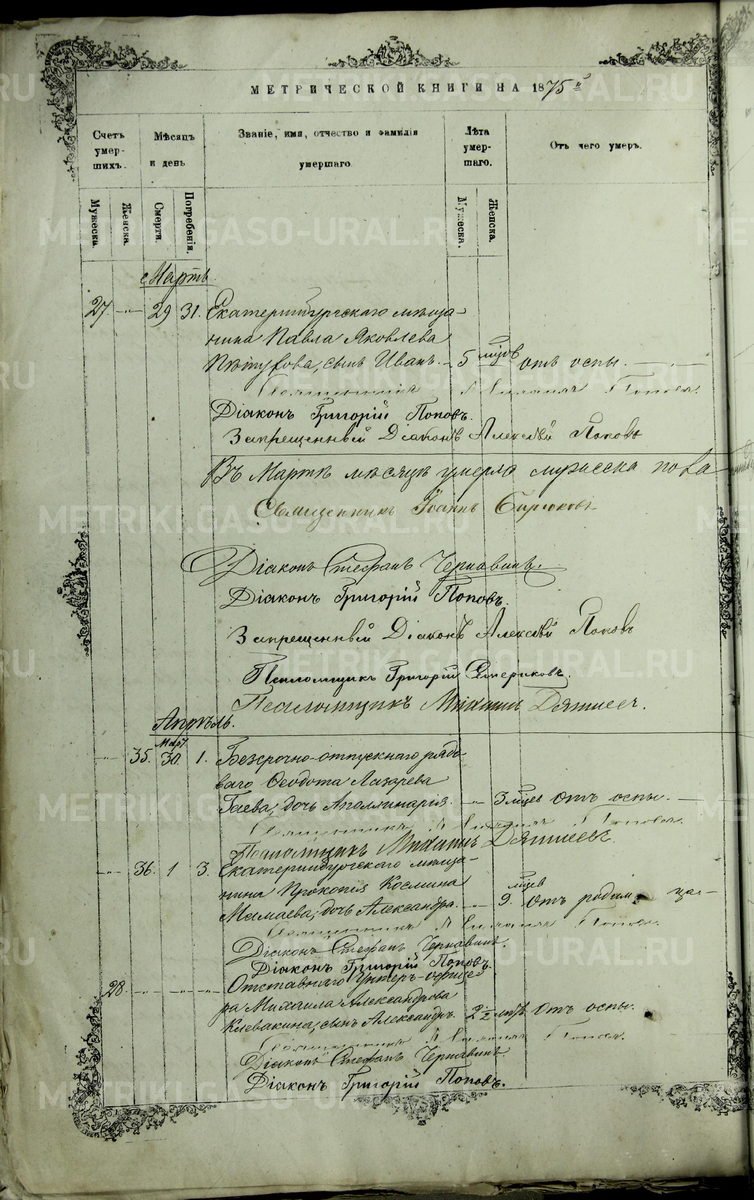 МЕТРИЧЕСКОЙ КНИГИ НА 1875й
Счетъ умершихъ.
Мѣсяцъ и день
Званіе, имя, отчество и фамилія умершаго.
Лѣта умершаго.
Отъ чего умеръ.
Мужеска.
Женска.
Смерти.
Погребенія.
Мужеска.
Женска.
Мартъ
27 29 31. Екатеринбургскаго мѣща-
нина Павла Яковлева
Пѣтухова, сынъ Иванъ. 5 мѣсяцов отъ оспы.
Священникъ Попов.
Діаконъ Григорій Поповъ.
Запрещенный Діаконъ Алексѣй Поповъ
Въ Мартѣ мѣсяцѣ умерло мужеска пола
Священникъ Іоаннъ
Діаконъ Стефанъ Чернавинъ.
Діаконъ Григорій Поповъ.
Запрещенный Діаконъ Алексѣй Поповъ
Псаломщикъ Григорій
Псаломщикъ Михаилъ
Апрѣль.
Мар
35. 30. 1. Безсрочно-отпускнаго рядо-
ваго Ѳеодота Лазарева
Гаева, дочь Аполлинарія. 3 мѣсяцев Отъ оспы.
Священникъ Попов.
Псаломщикъ Михаилъ
36. 1 3. Екатеринбургскаго мѣща-
нина Прокопія Космина
Мамаева, дочь Александра. 9. мѣсяцев Отъ
Священникъ Попов.
Діаконъ Стефанъ Чернавинъ.
Діаконъ Григорій Поповъ.
28. Отставнаго Унтеръ-офице-
ра Михаила Александрова
Клевакина, сынъ Александръ. 2 1/2 Отъ оспы.
Священникъ Попов.
Діаконъ Стефанъ Чернавинъ
Діаконъ Григорій Поповъ.
METRIKI.GASO-URAL.RU